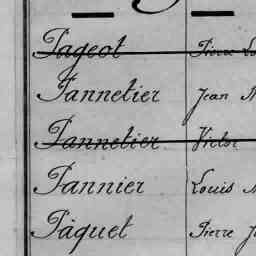 Pageot Pierre
Pannetier Jean
Pannetier Victor
Pannier Louis
Pâquet Pierre